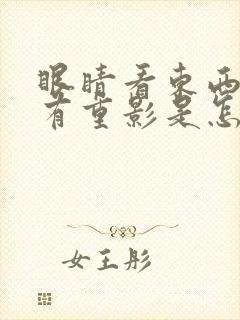 眼睛看东西
有重影是怎
女王彤